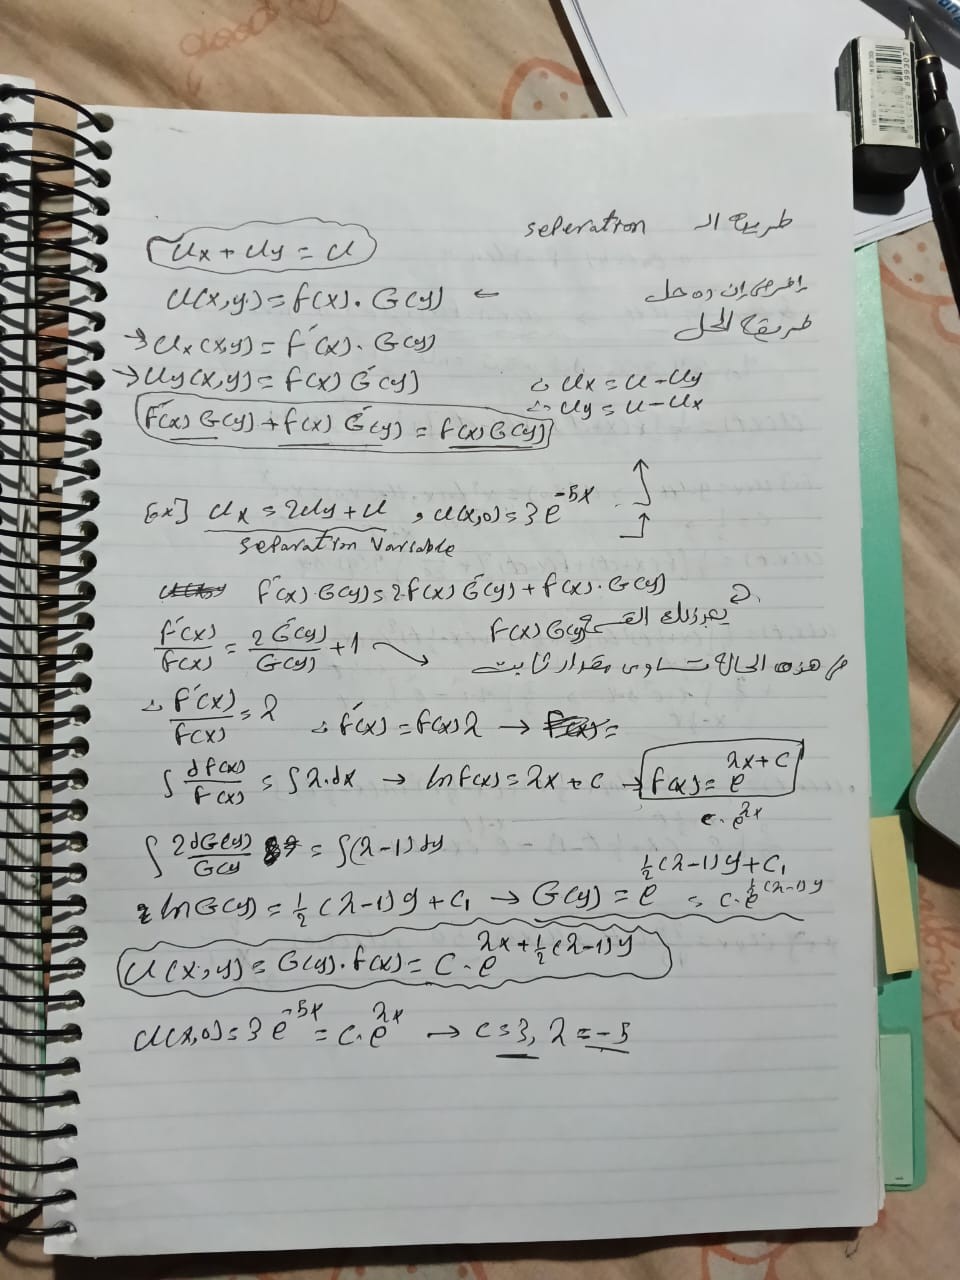 طريقة ال seperation
Ux + Uy = U
U(x,y) = f(x) . G(y) ← إفرض إن ده حل
طريقة الحل
→ Ux(x,y) = f'(x) . G(y)
→ Uy(x,y) = f(x) G'(y)
∴ Ux = U - Uy
∴ Uy = U - Ux
f'(x) G(y) + f(x) G'(y) = f(x) G(y)
Ex] Ux = 2Uy + U , U(x,0) = 3 e^{-5x}
separation Variable
f'(x) G(y) = 2 f(x) G'(y) + f(x) . G(y)
بعد ذلك القسمة f(x) G(y)
f'(x)/f(x) = 2 G'(y)/G(y) + 1
هذه الحالة تساوى مقدار ثابت
∴ f'(x)/f(x) = λ ∴ f'(x) = f(x) λ →
∫ df(x)/f(x) = ∫ λ . dx → ln f(x) = λx + C → f(x) = e^{λx + C}
c . e^{λx}
∫ 2dG(y)/G(y) = ∫ (λ-1) dy
ln G(y) = 1/2 (λ-1) y + C₁ → G(y) = e^{1/2 (λ-1) y + C₁} = C . e^{1/2 (λ-1) y}
U(x,y) = G(y) . f(x) = C . e^{λx + 1/2 (λ-1) y}
U(x,0) = 3 e^{-5x} = C . e^{λx} → C = 3, λ = -5